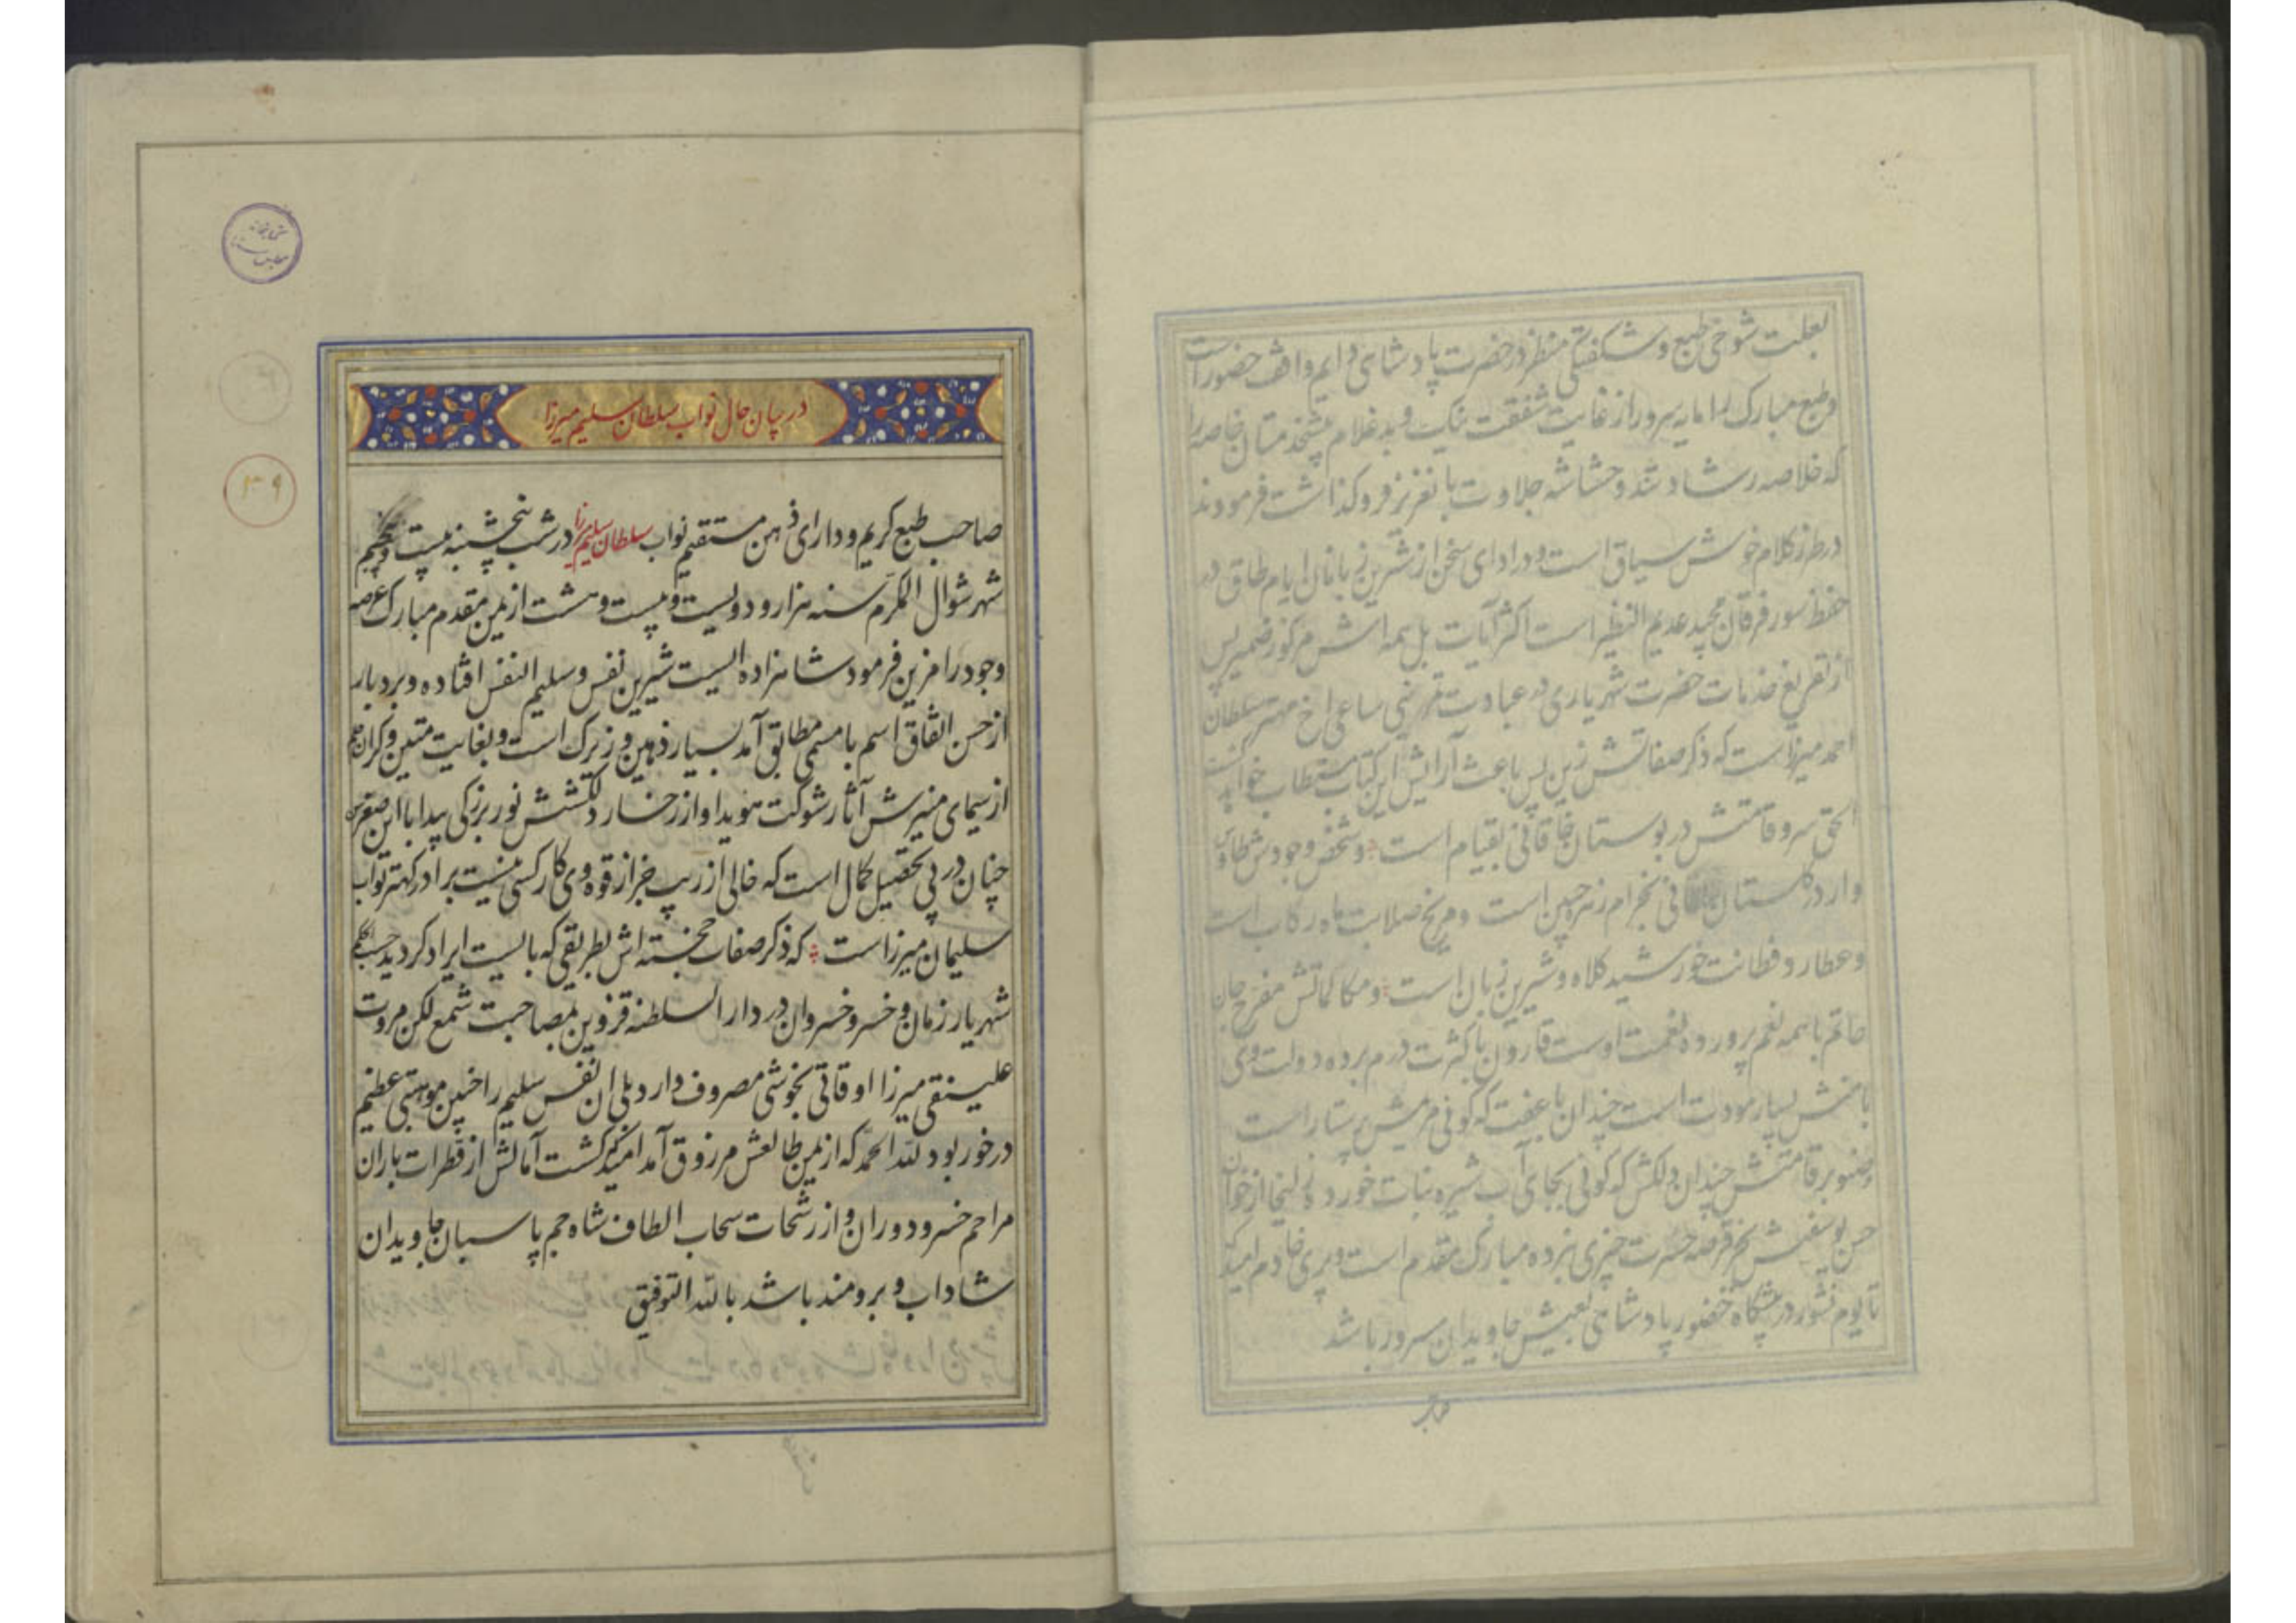 بعلت شوخی طبع و شکفتگی منظر در حضرت پادشاهی دایم واقف حضور است
و طبع مبارک را مایه سرور از غایت شفقت یک و بد غلام پیشخدمتان خاصه را
که خلاصه رشاد شد و حشاشه جلاوت با نغز نغز فروگذاشت فرمودند
در طرز کلام خوش سیاق است و در ادای سخن از شیرین زبانان ایام طاق در
حفظ سور فرقان مجید عدیم النظیر است اکثر آیات بل همه اش مرکوز ضمیر پس
از تفریغ خدمات حضرت شهریاری در عبادت ساعی اخ مهتر سلطان
احمد میرزا است که ذکر صفاتش زین پس باعث آرایش این کتاب مستطاب خواهد گشت
الحق سرو قامتش در بوستان خاقانی بقیام است و شخص وجودش طاوس
وار در گلستان بخرام زهره جبین است و مریخ صلابت ماه رکاب است
و عطارد فطانت خورشید کلاه و شیرین زبان است و مکالماتش مفرح جان
حاتم با همه نعم پرورده نعمت اوست قارون با کثرت درم برده دولت وی
بامنش بسیار مودت است چندان با عفت که گوئی مریمش پرستار است
صنوبر قامتش چندان دلکش که گوئی بجای آب شیره نبات خورده زلیخا از خوان
حسن یوسفیش بجز قرصه حسرت چیزی نبرده مبارک مقدم است و پری خادم امید که
تا یوم نشور در پیشگاه حضور پادشاهی بعیش جاویدان سرور باشد
در بیان حال نواب سلطان سلیم میرزا
صاحب طبع کریم و دارای ذهن مستقیم نواب سلطان سلیم میرزا در شب پنجشنبه بیست و پنجم
شهر شوال المکرم سنه هزار و دویست و بیست و هشت از یمن مقدم مبارک عرصه
وجود را مزین فرمود شاهزاده ایست شیرین نفس و سلیم النفس افتاده و بردبار
از حسن اتفاق اسم با مسمی مطابق آمد بسیار ذهین و زیرک است و بغایت متین و گران حلم
از سیمای منیرش آثار شوکت هویدا و از رخسار دلکشش نور بزرگی پیدا با این صغر سن
چنان در پی تحصیل کمال است که خالی از ریب جز از قوه وی کار کسی نیست برادر کهتر نواب
سلیمان میرزا است که ذکر صفات خجسته اش بطریقی که بایست ایراد گردید حسب الحکم
شهریار زمان و خسرو خسروان در دار السلطنه قزوین بمصاحبت شمع لکن مروت
علینقی میرزا اوقاتی بخوشی مصروف دارد بلی ان نفس سلیم را چنین موهبتی عظیم
در خور بود لله الحمد که از یمن طالعش مرزوق آمد امید که کشت آمالش از قطرات باران
مراحم خسرو دوران و از رشحات سحاب الطاف شاه جم پاسبان جاویدان
شاداب و برومند باشد بالله التوفیق
۳۹